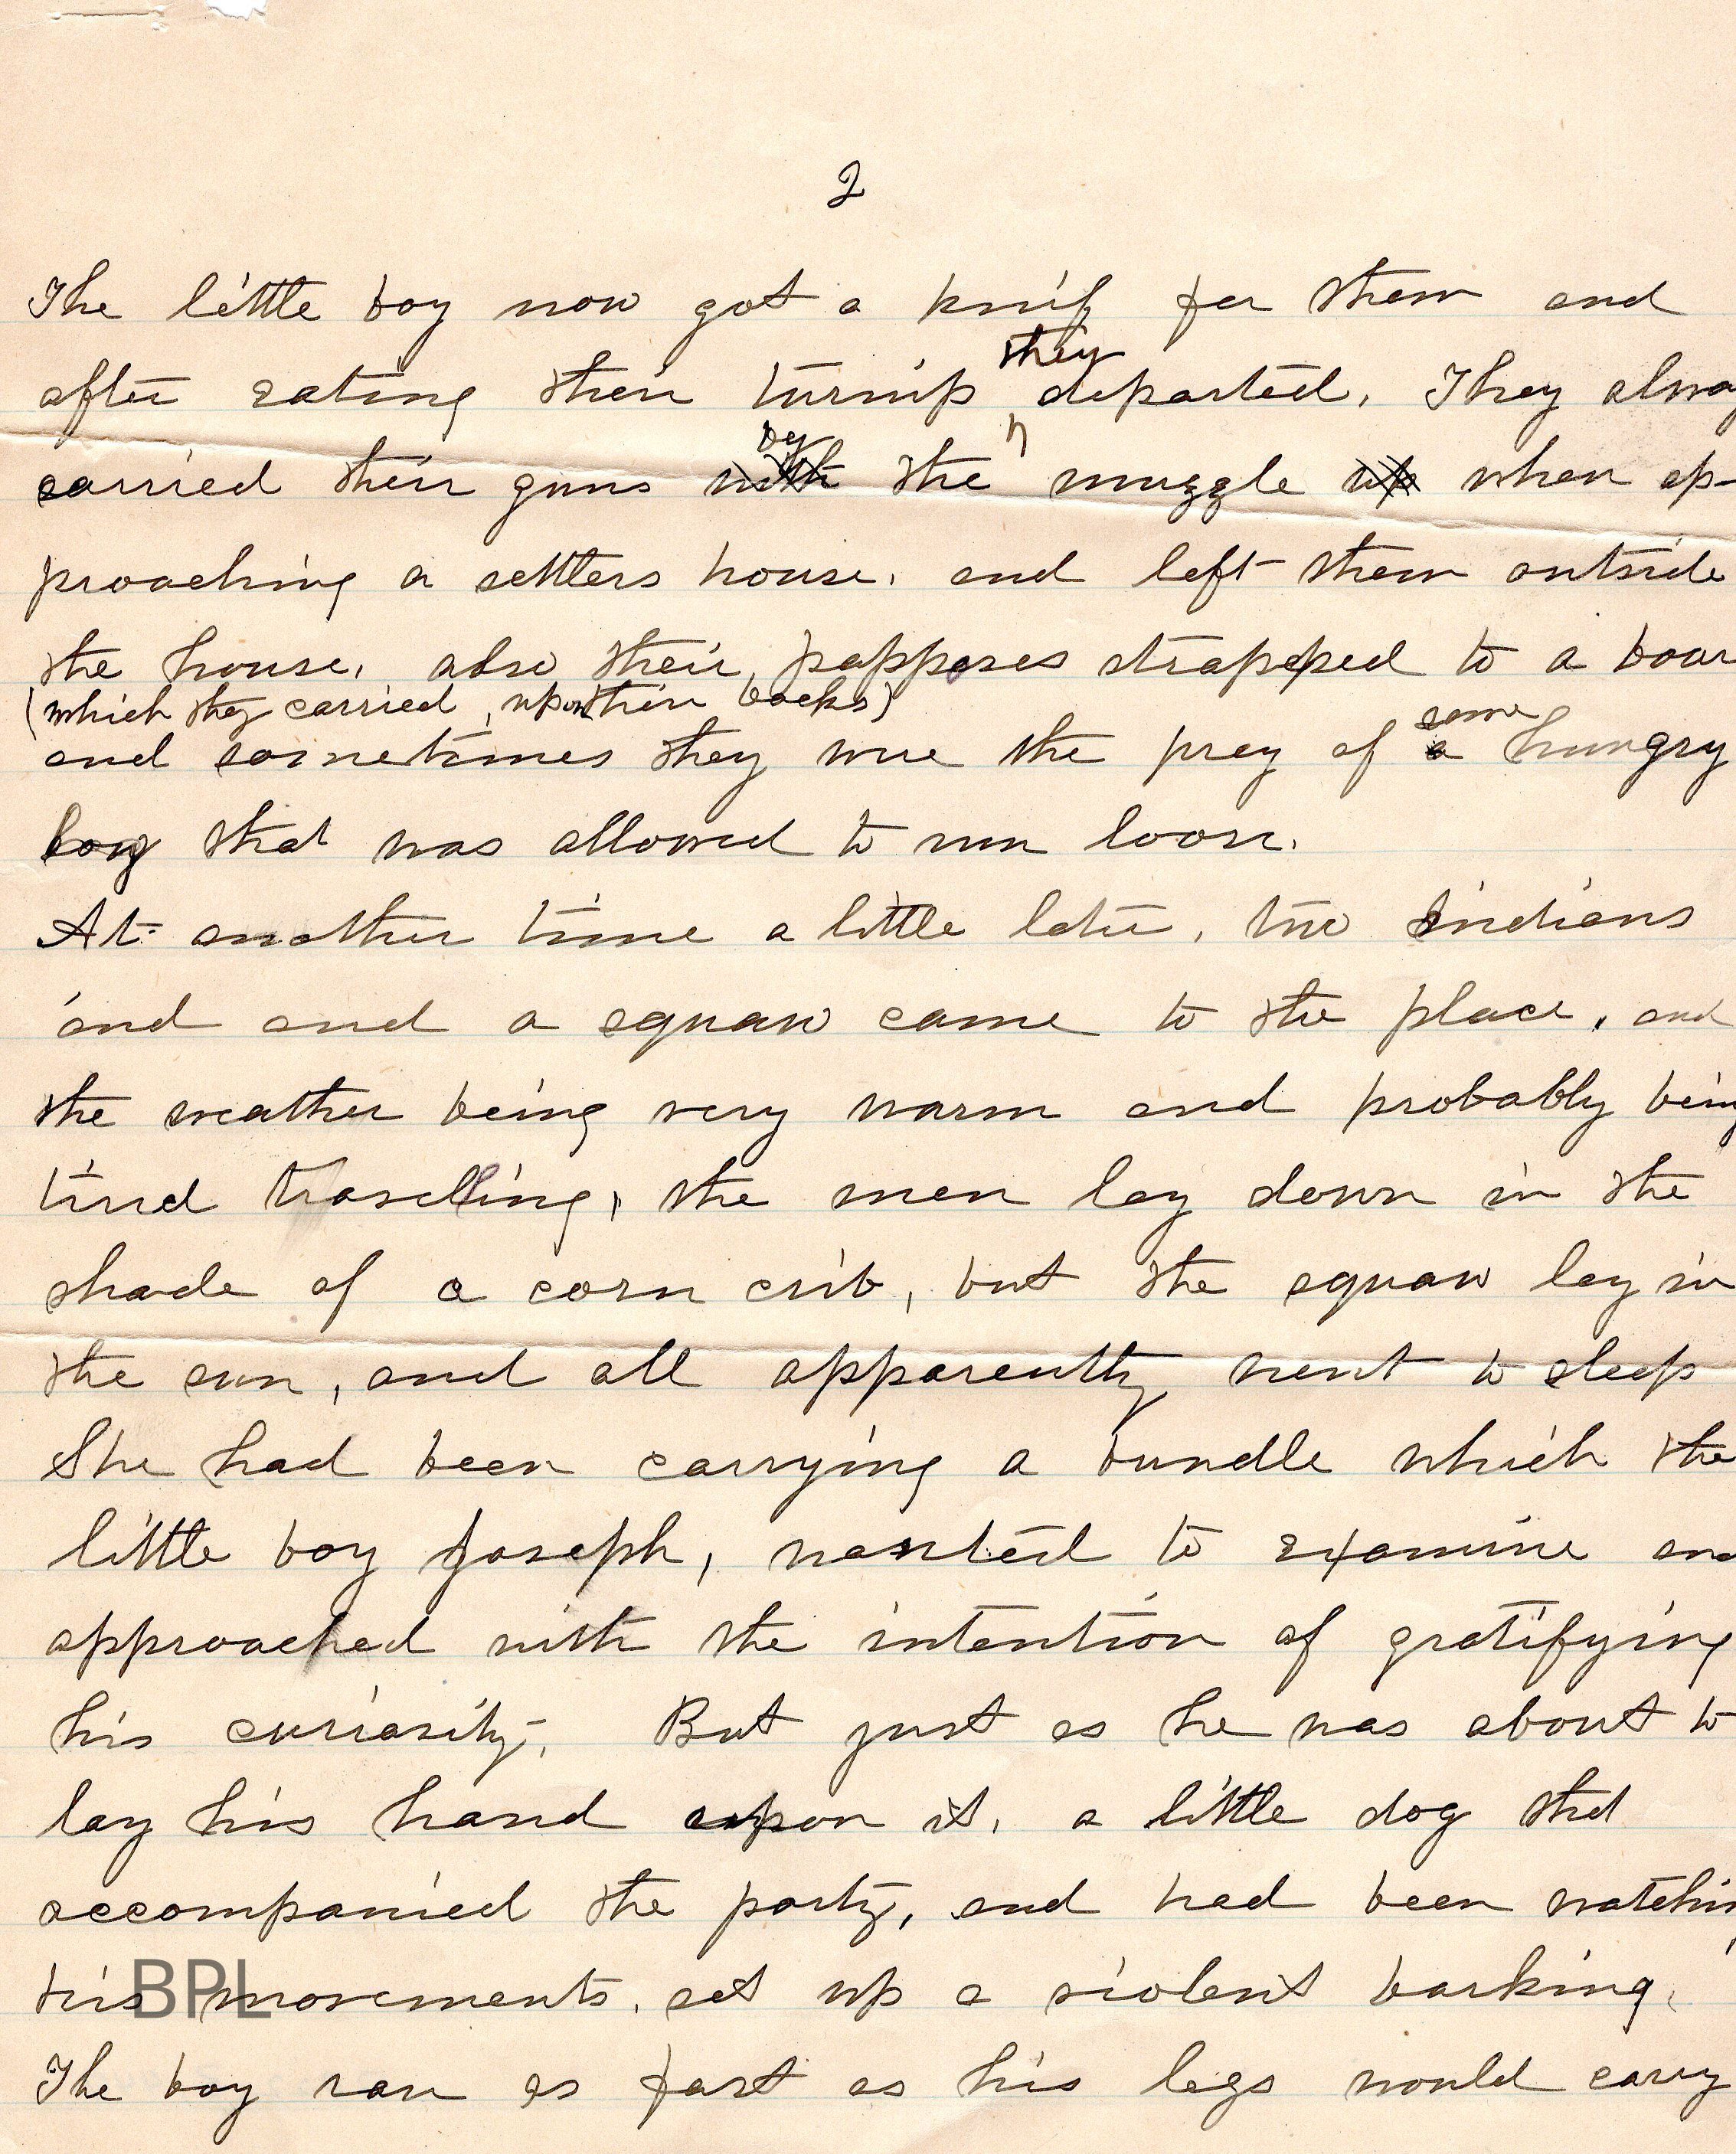 2
The little boy now got a knif for them and
after eating their turnip they departed. They alwa
carried their guns with by the muzzle up when ap-
proaching a settlers house, and left them outside
the house, also their papposes strapped to a boar
(which they carried upon their backs)
and sometimes they were the prey of a some hungry
hog that was allowed to run loose.
At another time a little later, two indians
and and a squaw came to the place, and
the weather being very warm and probably being
tired travelling, the men lay down in the
shade of a corn crib, but the squaw lay in
the sun, and all apparently went to sleep
She had been carrying a bundle which the
little boy Joseph, wanted to examine and
approached with the intention of gratifying
his curiosity. But just as he was about to
lay his hand upon it, a little dog that
accompanied the party, and had been watchin
his movements, set up a violent barking.
The boy ran as fast as his legs would carry
BPL